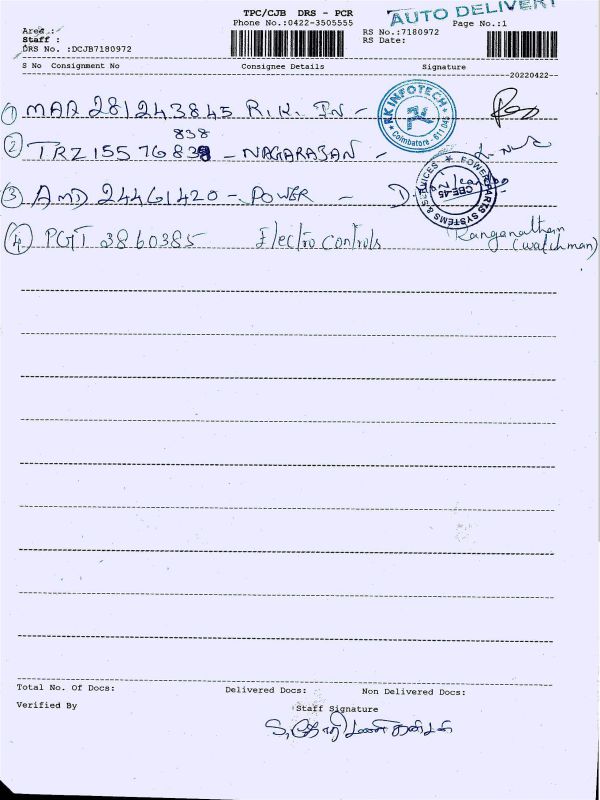 TPC/CJB DRS - PCR
AUTO DELIVERY
Area :
Phone No.:0422-3505555
Page No.:1
Staff :
RS No.:7180972
DRS No. :DCJB7180972
RS Date:
S No Consignment No Consignee Details Signature
20220422--
① MAA 281243845 R.K. IN -
RK INFOTECH
Coimbatore - 611 045
838
② TRZ 15576838 - NAGARAJAN -
③ AMD 24461420 - POWER - D.
POWER PARTS SYSTEMS & SERVICES
CBE-45
④ PGT 3860385 Electro controls Ranganathan
(watchman)
Total No. Of Docs: Delivered Docs: Non Delivered Docs:
Verified By Staff Signature